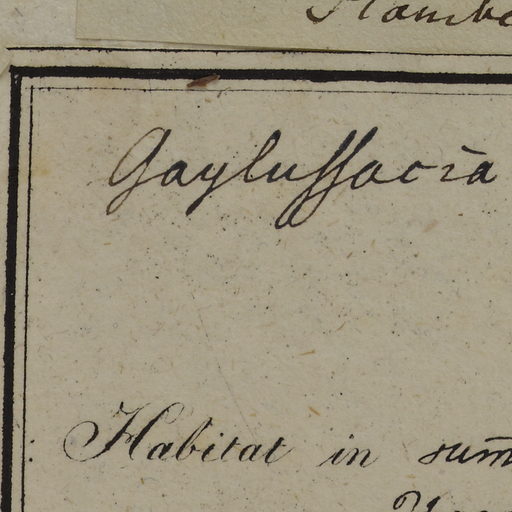 Gaylussacia
Habitat in sum̅